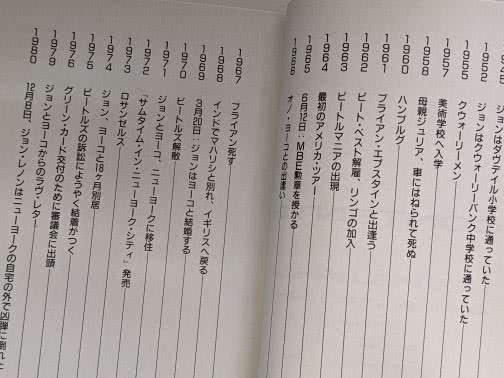 ジョンはダヴデイル小学校に通っていた
1952 ジョンはクウォーリーバンク中学校に通っていた
1955 クウォーリーメン
1957 美術学校へ入学
1958 母親ジュリア、車にはねられて死ぬ
1960 ハンブルグ
1961 ブライアン・エプスタインと出逢う
1962 ピート・ベスト解雇、リンゴの加入
1963 ビートルマニアの出現
1964 最初のアメリカ・ツアー
1965 6月12日:MBE勲章を授かる
1966 オノ・ヨーコとの出逢い
1967 ブライアン死す
1968 インドでマハリシと別れ、イギリスへ戻る
1969 3月20日:ジョンはヨーコと結婚する
1970 ビートルズ解散
1971 ジョンとヨーコ、ニューヨークに移住
1972 「サムタイム・イン・ニューヨーク・シティ」発売
1973 ロサンゼルス
1974 ジョン、ヨーコと18ヶ月別居
1975 ビートルズの訴訟にようやく結着がつく
1976 グリーン・カード交付のために審議会に出頭
1979 ジョンとヨーコからのラヴ・レター
1980 12月8日、ジョン・レノンはニューヨークの自宅の外で凶弾に倒れた